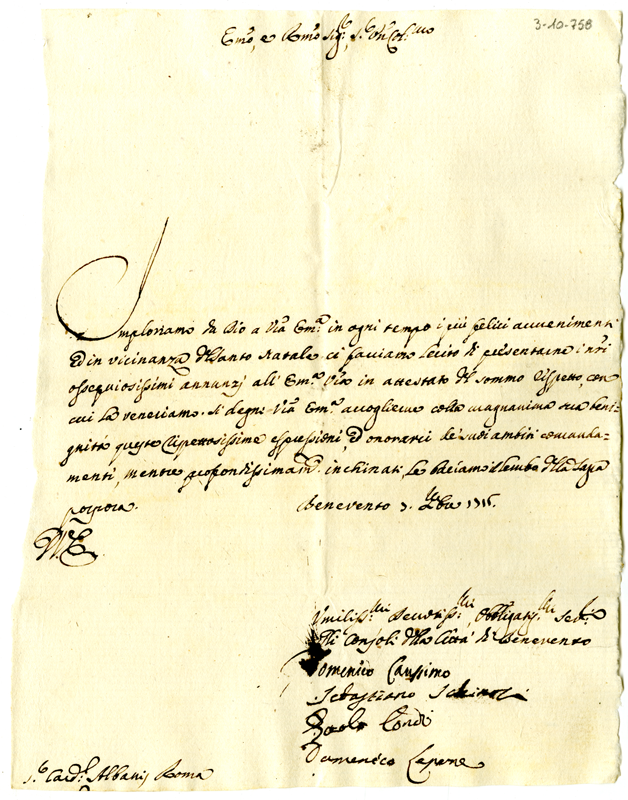 3-10-758
Emo, e Rmo Sig.r, S.r
Imploriamo da Dio a Vra Em.a in ogni tempo i più felici avvenimenti
ed in vicinanza del Santo Natale ci facciamo lecito di presentarne i nri
ossequiosissimi annunzj all' Em.a Vra in attestato del sommo rispetto, con
cui la veneriamo. Si degni Vra Em.a accoglierne colla magnanima sua beni-
gnità queste rispettosissime espressioni, ed onorarci de' suoi ambiti comanda-
menti, mentre inchinati, le baciamo il lembo della Sagra
porpora. Benevento 3. Xbre
V. E.
Umiliss.mi Devotiss.mi Obbligatiss.mi Ser.i
Consoli della Città di Benevento
Domenico
Sebastiano
Paolo
Domenico Capone
S.r Card.l Albani Roma